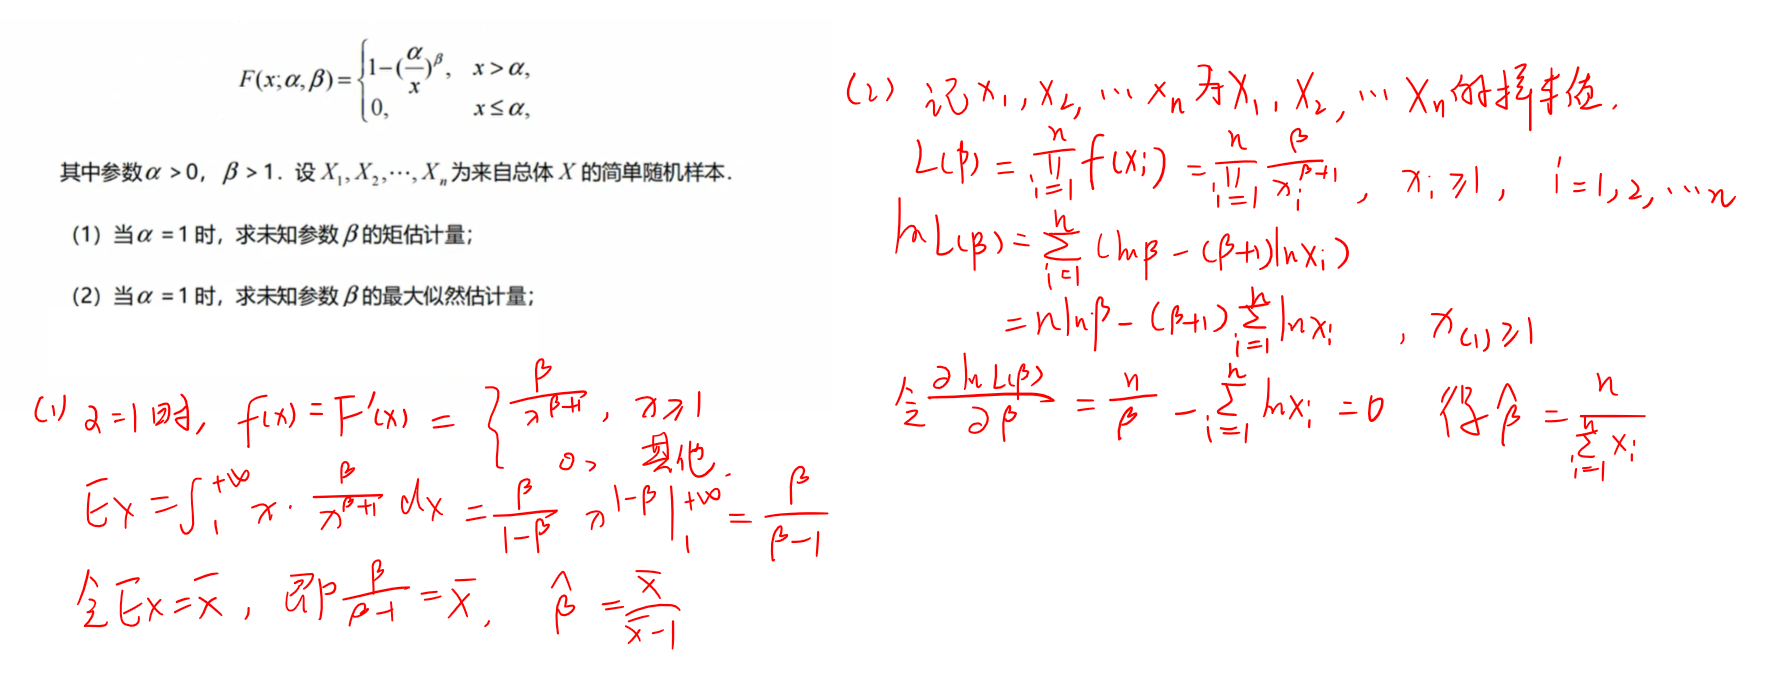 F(x;α,β)={1-(α/x)^β, x>α,
0, x≤α,
其中参数α>0, β>1. 设X₁,X₂,⋯,Xₙ为来自总体X的简单随机样本.
(1) 当α=1时, 求未知参数β的矩估计量;
(2) 当α=1时, 求未知参数β的最大似然估计量;
(1) α=1时, f(x)=F'(x)={β/x^(β+1), x≥1
0, 其他.
EX=∫₁^(+∞) x·β/x^(β+1) dx=β/(1-β) x^(1-β)|₁^(+∞)=β/(β-1)
令EX=x̄, 即β/(β-1)=x̄, β̂=x̄/(x̄-1)
(2) 记x₁,x₂,⋯xₙ为X₁,X₂,⋯Xₙ的样本值.
L(β)=∏_(i=1)^n f(xᵢ)=∏_(i=1)^n β/xᵢ^(β+1), xᵢ≥1, i=1,2,⋯n
lnL(β)=∑_(i=1)^n (lnβ-(β+1)lnxᵢ)
=nlnβ-(β+1)∑_(i=1)^n lnxᵢ, x₍₁₎≥1
令∂lnL(β)/∂β=n/β-∑_(i=1)^n lnxᵢ=0 得β̂=n/∑_(i=1)^n xᵢ